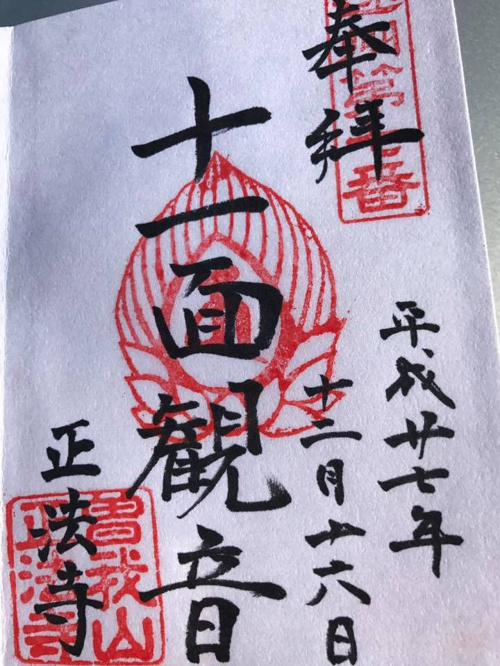 奉拝
平成廿七年
十二月廿六日
十一面観音
正法寺
曽我山
正法寺